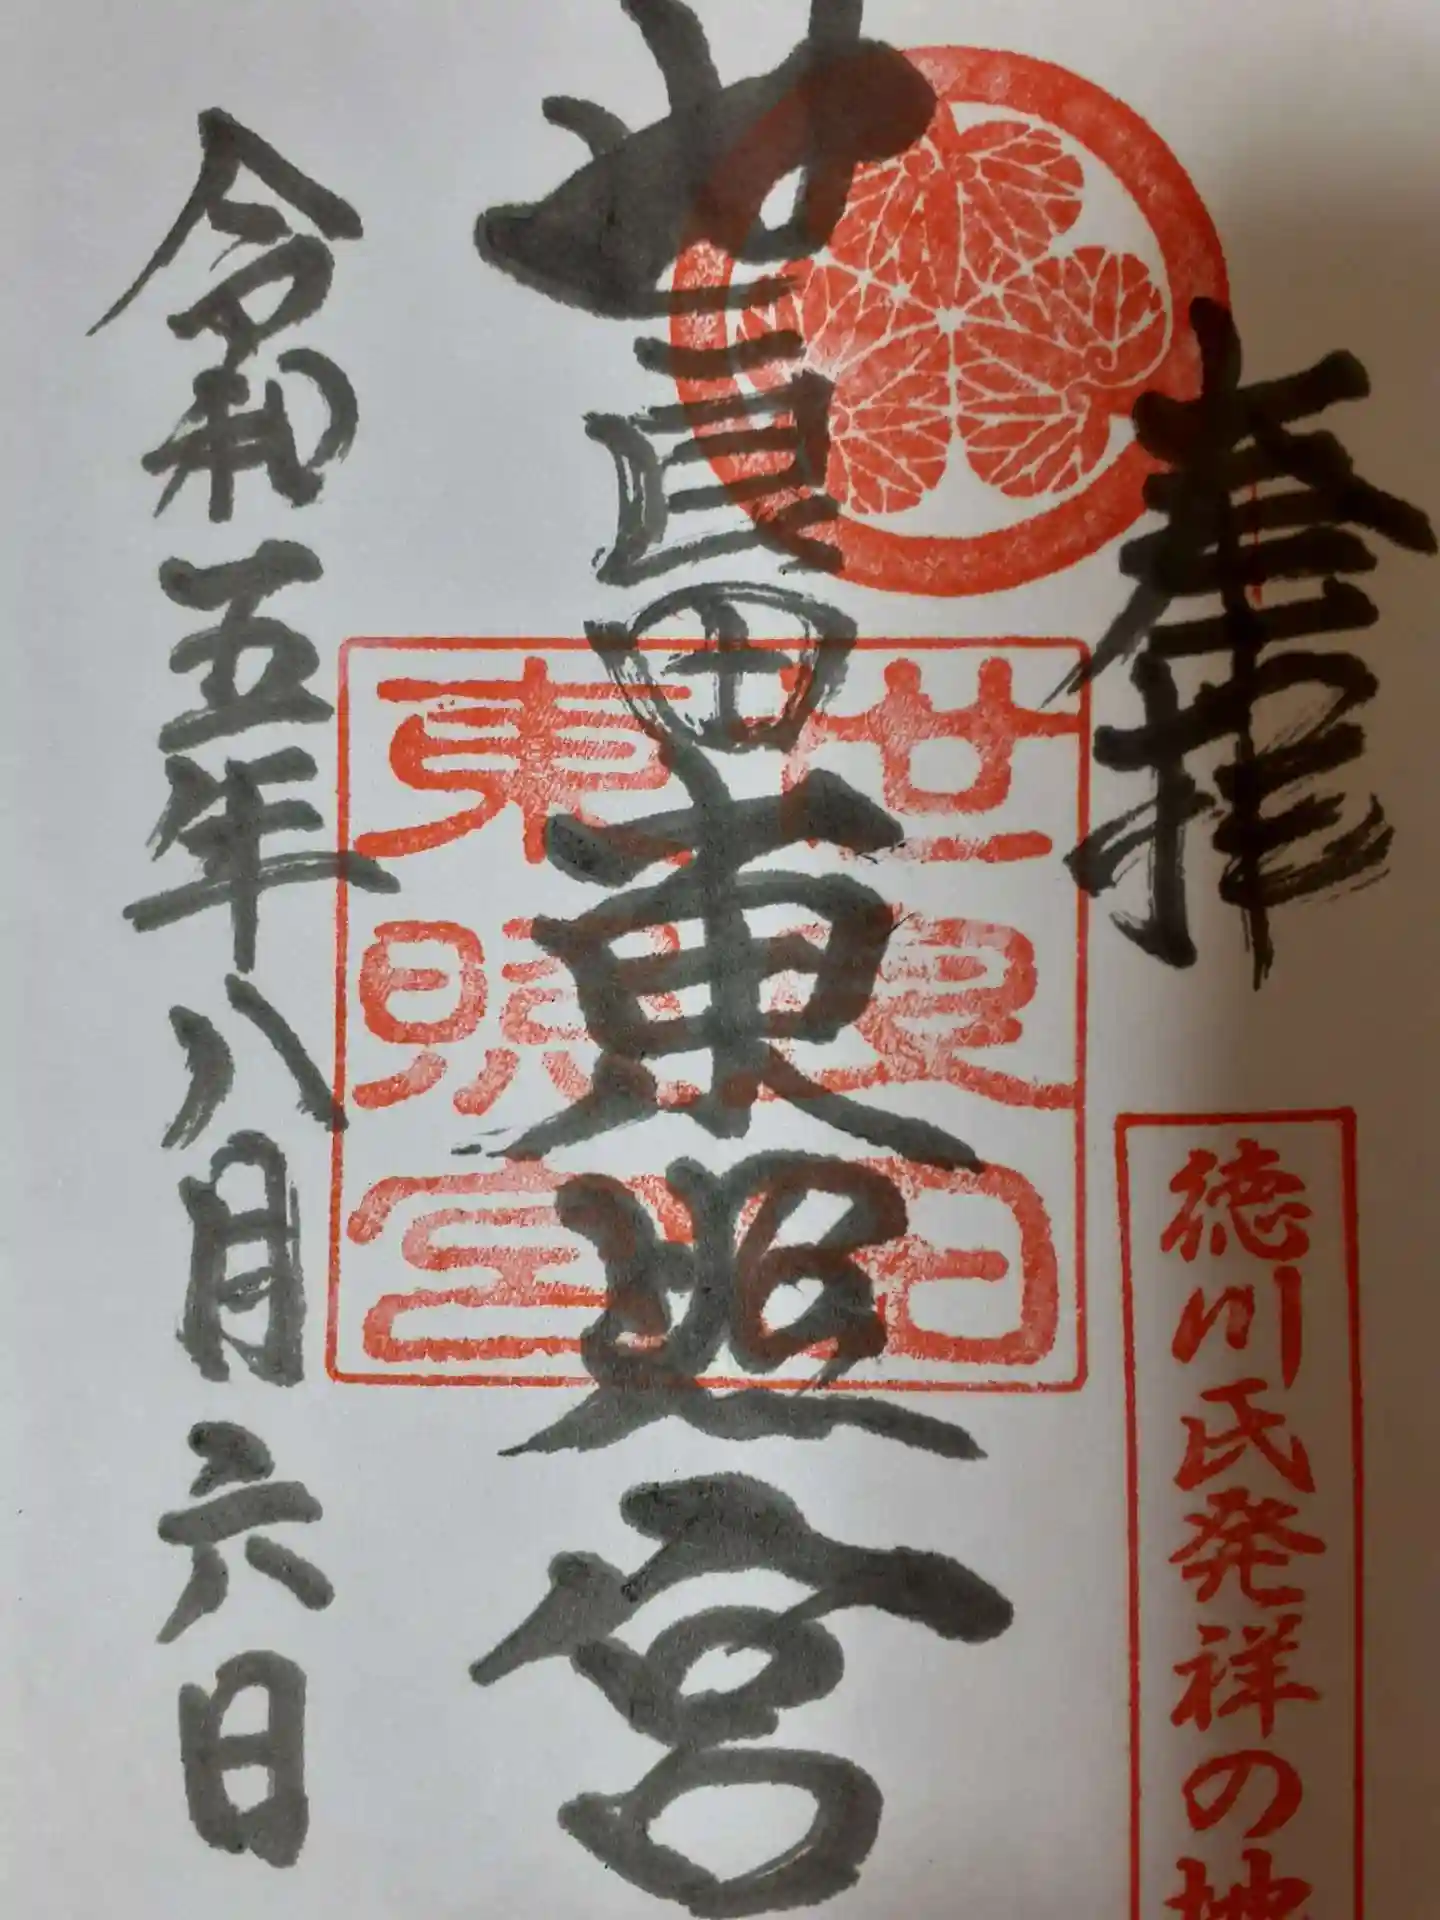 奉拝
徳川氏発祥の地
世良田東照宮
世良田
東照宮
令和五年八月六日